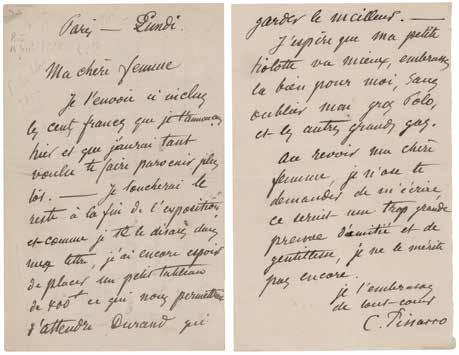 Paris — Lundi.
Ma chère femme
Je t'envoie ci inclus
les cent francs que je t'annonçais
hier et que j'aurai tant
voulu te faire parvenir plus
tôt. — Je toucherai le
reste à la fin de l'exposition
et comme je te le disais dans
ma lettre, j'ai encore espoir
de placer un petit tableau
de 400f ce qui nous permettrait
d'attendre Durand qui
garder le meilleur. —
J'espère que ma petite
va mieux, embrasse
la bien pour moi, sans
oublier mon gros Polo,
et les autres grands gas.
au revoir ma chère
femme, je n'ose te
demander de m'écrire,
ce serait une trop grande
preuve d'amitié et de
gentillesse, je ne le mérite
pas encore.
je t'embrasse
de tout cœur
C. Pissarro